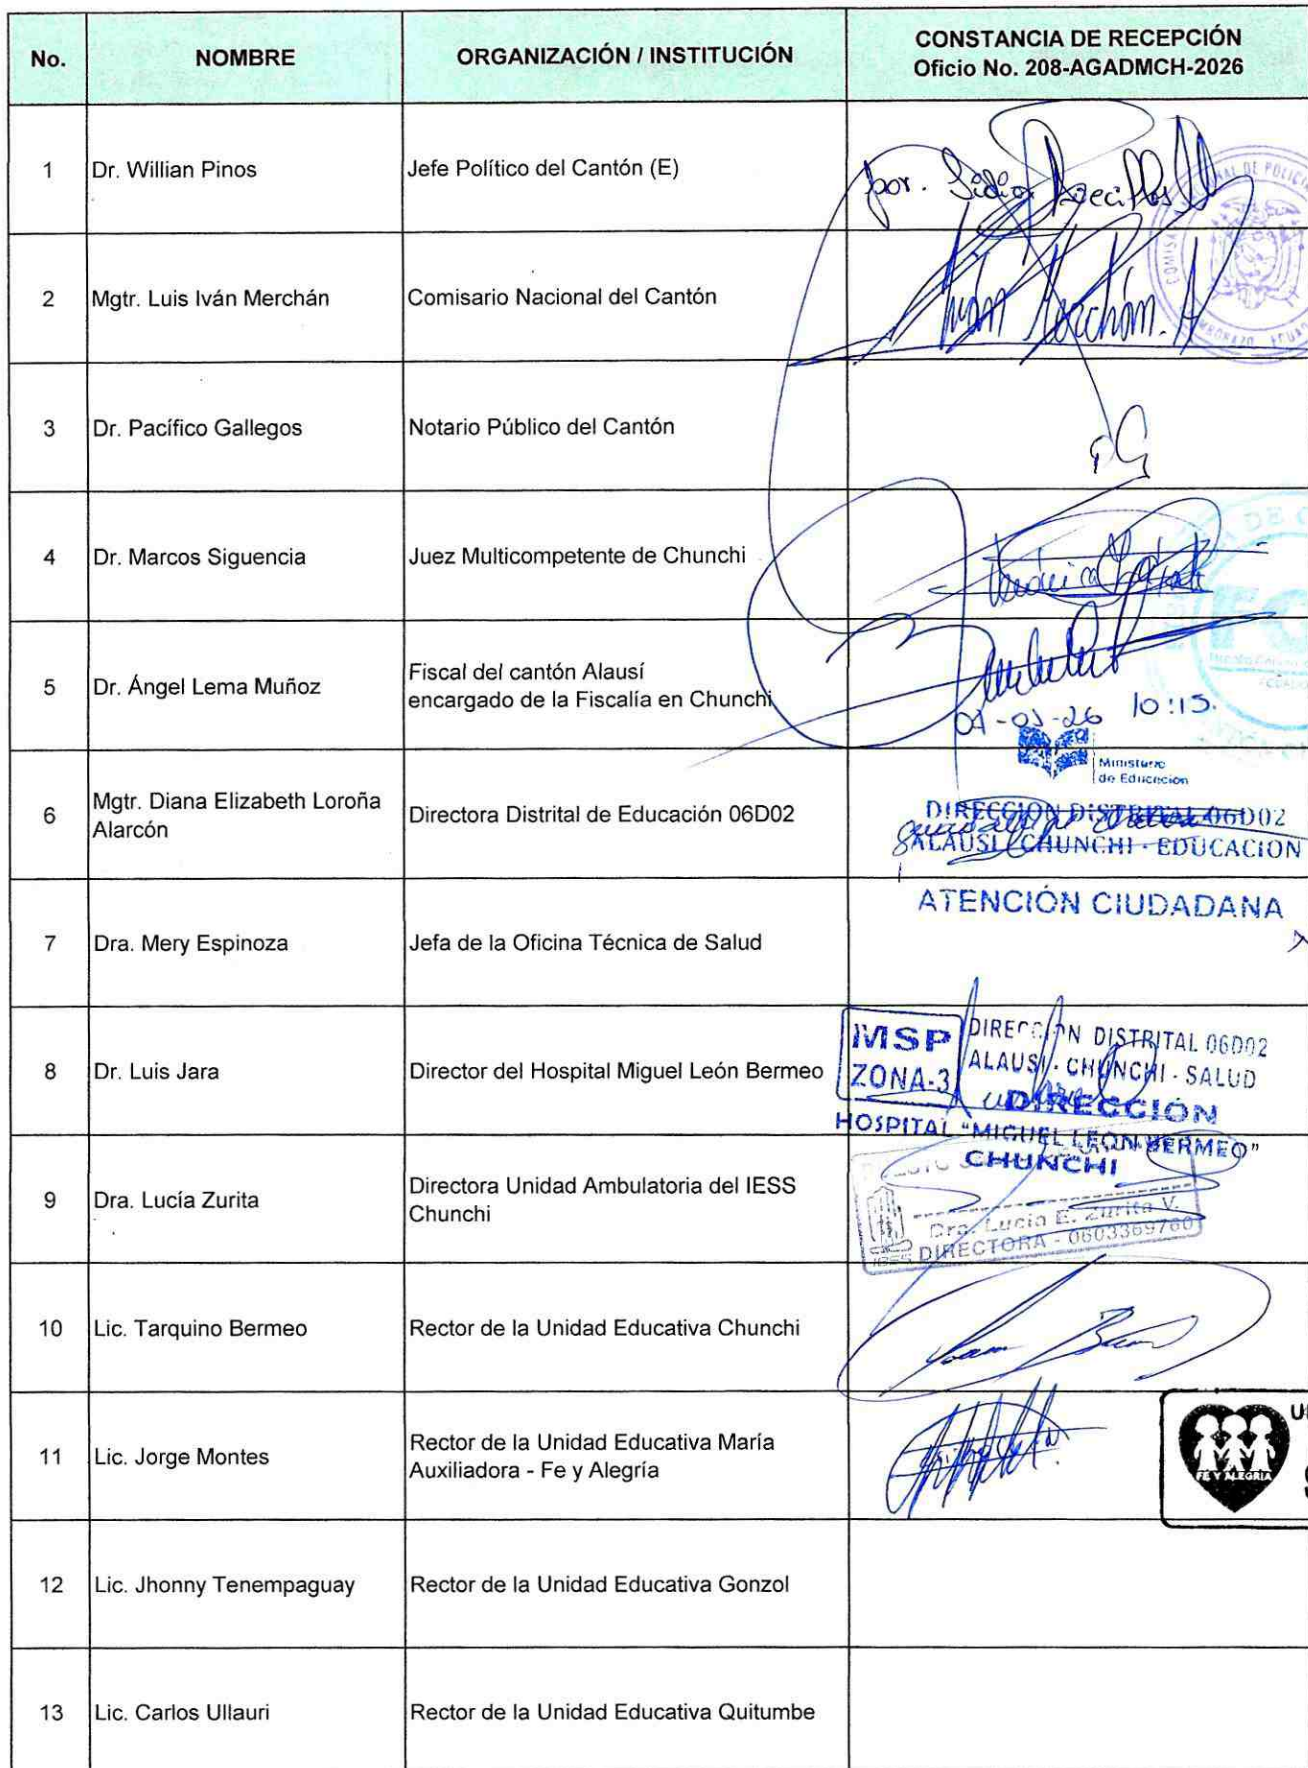 No.
NOMBRE
ORGANIZACIÓN / INSTITUCIÓN
CONSTANCIA DE RECEPCIÓN
Oficio No. 208-AGADMCH-2026
1
Dr. Willian Pinos
Jefe Político del Cantón (E)
por.
2
Mgtr. Luis Iván Merchán
Comisario Nacional del Cantón
Iván Merchán. A
3
Dr. Pacífico Gallegos
Notario Público del Cantón
4
Dr. Marcos Siguencia
Juez Multicompetente de Chunchi
5
Dr. Ángel Lema Muñoz
Fiscal del cantón Alausí
encargado de la Fiscalía en Chunchi
10:15.
Ministerio
de Educación
6
Mgtr. Diana Elizabeth Loroña
Alarcón
Directora Distrital de Educación 06D02
DIRECCION DISTRITAL 06D02
ALAUSI - CHUNCHI - EDUCACION
ATENCIÓN CIUDADANA
7
Dra. Mery Espinoza
Jefa de la Oficina Técnica de Salud
8
Dr. Luis Jara
Director del Hospital Miguel León Bermeo
MSP
ZONA-3
DIRECCIÓN DISTRITAL 06D02
ALAUSI - CHUNCHI - SALUD
DIRECCIÓN
HOSPITAL "MIGUEL LEÓN BERMEO"
CHUNCHI
9
Dra. Lucía Zurita
Directora Unidad Ambulatoria del IESS
Chunchi
Dra. Lucía E. Zurita V.
DIRECTORA - 0603369760
IESS
10
Lic. Tarquino Bermeo
Rector de la Unidad Educativa Chunchi
11
Lic. Jorge Montes
Rector de la Unidad Educativa María
Auxiliadora - Fe y Alegría
FE Y ALEGRÍA
12
Lic. Jhonny Tenempaguay
Rector de la Unidad Educativa Gonzol
13
Lic. Carlos Ullauri
Rector de la Unidad Educativa Quitumbe